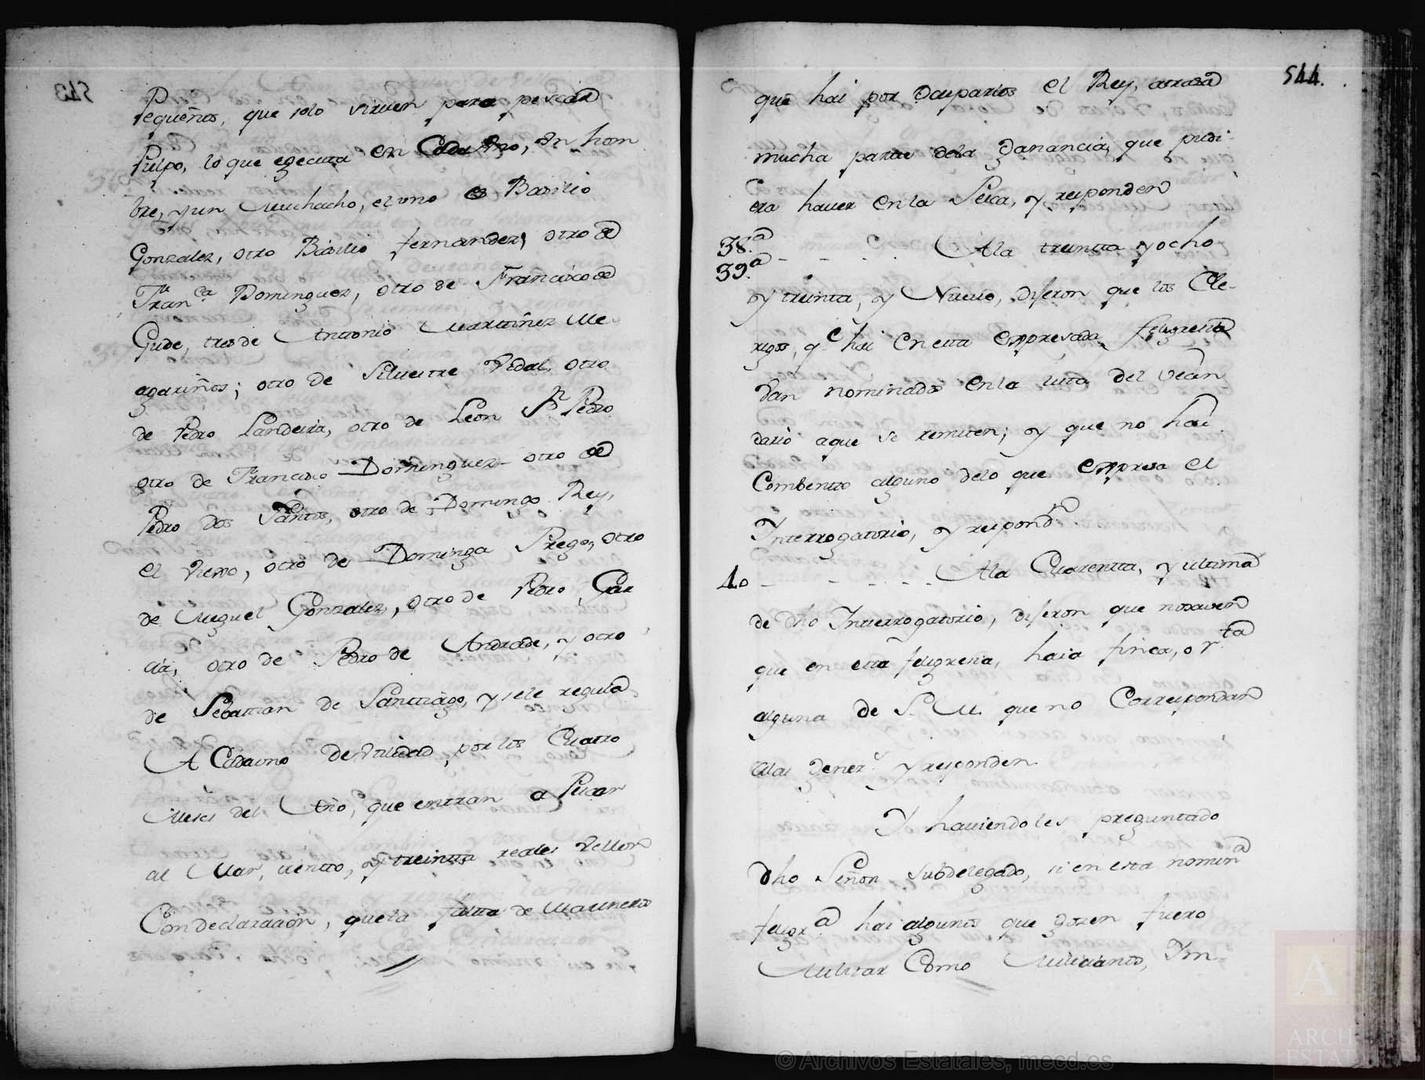 543
Pequeños, que solo sirven para pescar
Pulpo, lo que egecuta en Cada Uno, Un hom
bre, y un Muchacho, el uno es Basilio
Gonzalez, otro Basilio Fernandez, otro de
Fran.ca Dominguez, otro de Francisco de
Gude, tres de Antonio Martinez Me
agariños; otro de Silvestre Vidal, otro
de Pedro Landeira, otro de Leon Sn Pedro
otro de Francisco Dominguez otro de
Pedro dos Santos, otro de Domingo Rey,
el Viejo, otro de Dominga Prego, otro
de Miguel Gonzalez, otro de Pedro Gar
cia, otro de Pedro de Andrade, y otro
de Sebastian de Santtiago, y sele regula
A Cada uno de Utilidad, por los Cuatro
Meses del Año, que entran a Pescar
al Mar, ciento, y treintta reales Vellon
Con declarazion, que la falta de Marineros
544.
que hai por Ocuparlos el Rey, atrasa
mucha parte dela Ganancia, que pudi
era haver en la Pesca, y responden
38.a
39.a - - - - - Ala treintta y ocho
y treinta, y Nueve, dijeron que los Cle-
rigos, q.e hai en esta expresada feligresia
van nominados en la lista del vecin
dario aque se remiten; y que no hai
Combento alguno delo que expresa el
Interrogatorio, y respond.n
40 - - - - - Ala Quarentta, y ultima
de dho Interrogatorio, dijeron que no saven
que en esta feligresia, haia finca, o r.ta
alguna de S. M. que no Correspondan
alas Gener.s y responden
Y haviendoles preguntado
dho Señor Subdelegado, si en esta nomin.a
feligr.a hai algunos que gozen fuero
Militar Como Milicianos, Ym
© Archivos Estatales, mecd.es
A
ARCH
ESTA